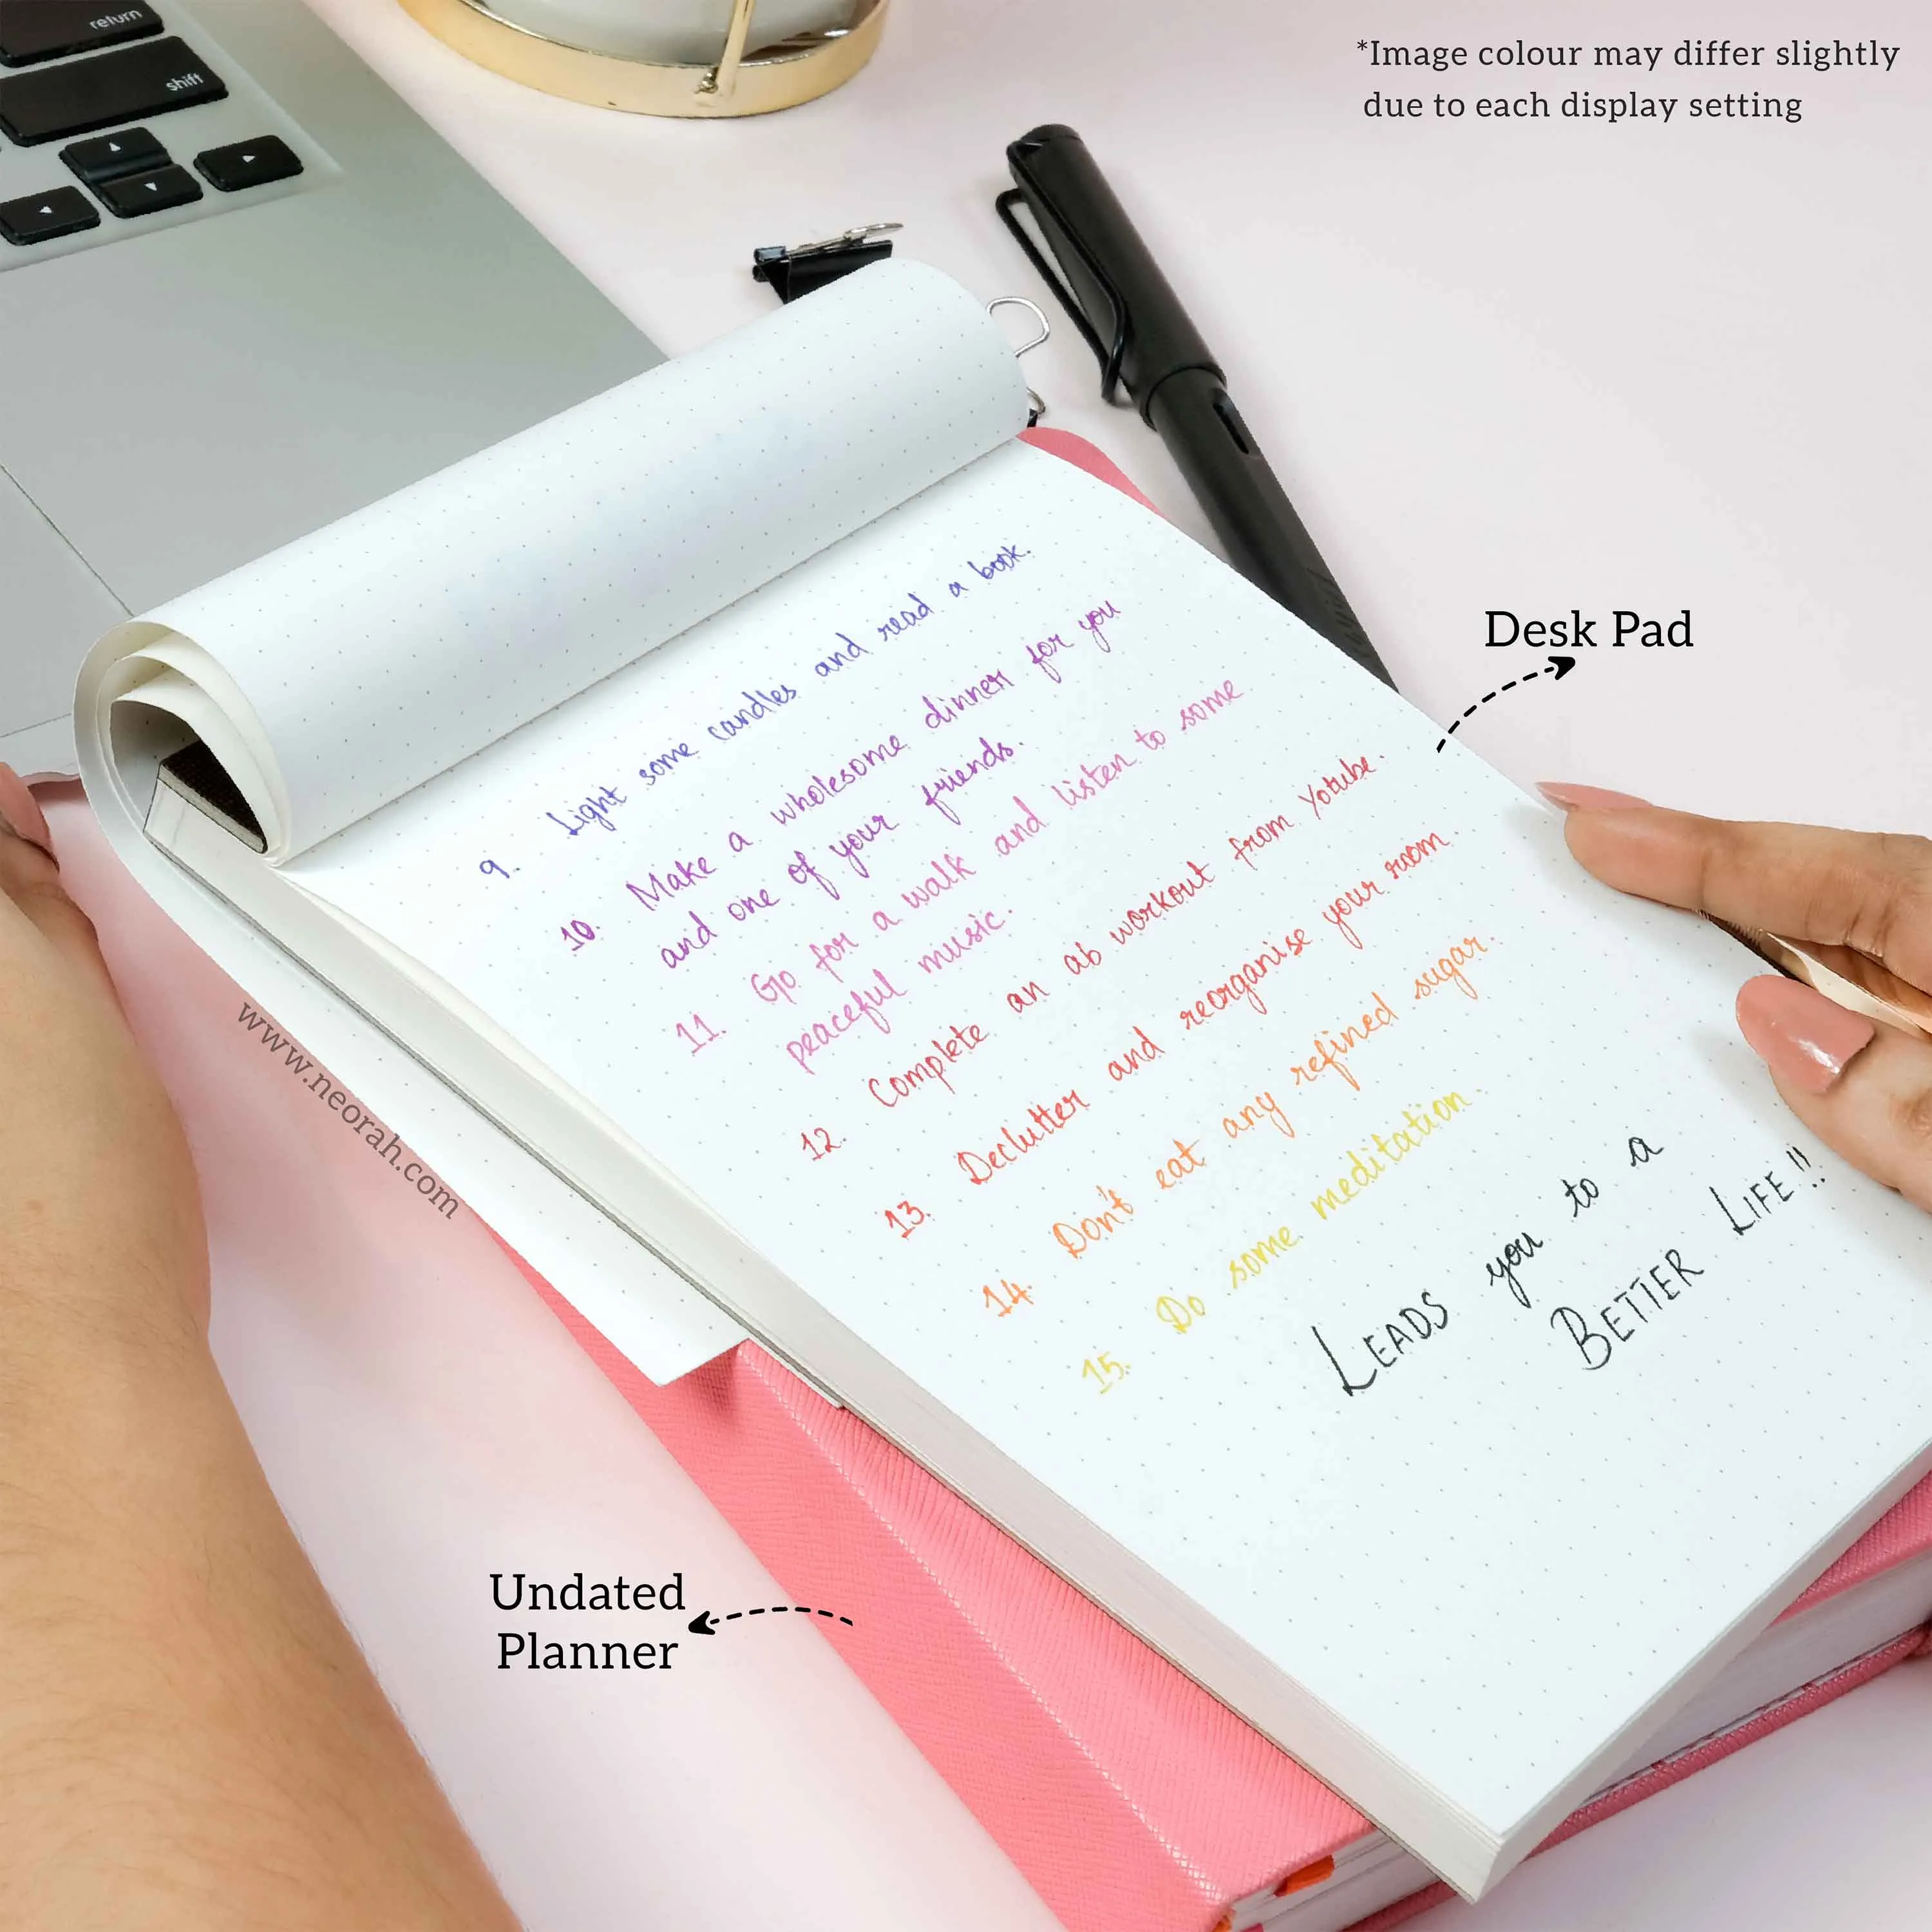 return
shift
*Image colour may differ slightly
due to each display setting
9. Light some candles and read a book.
10. Make a wholesome dinner for you
and one of your friends.
11. Go for a walk and listen to some
peaceful music.
12. Complete an ab workout from Yotube.
13. Declutter and reorganise your room
14. Don't eat any refined sugar.
15. Do some meditation.
LEADS you to a
BETTER LIFE!!
Desk Pad
www.neorah.com
Undated
Planner